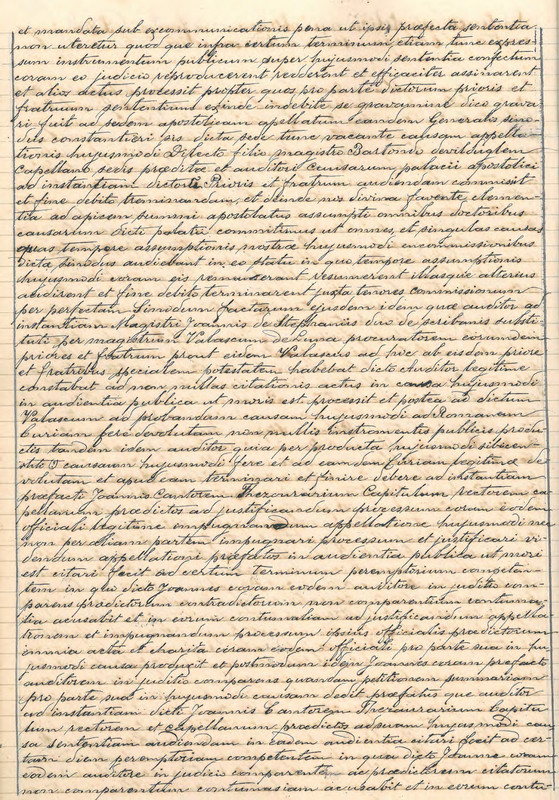 et mandata sub excommunicationis pena ut ipsis præfecta sententia
non uteretur quod que infra certum terminum, etiam tunc expres-
sum instrumentum publicum super hujusmodi sententia confectum
coram eo judicio reproducerent redderent et efficaciter assinarent
et alios actus processit propter quos pro parte dictorum prioris et
fratruum sententium exinde indebite se gravamine dico grava-
ri fuit ad sedem apostolicam appellatum eandem Generalis sino-
dus constantieri sis dicta sede tunc vacante causam appella-
tionis hujusmodi Dilecto filio magistro Bartondo devilchglem
Capellano sedis prædictæ et auditori causarum palacii apostolici
ad instantiam dictorū Prioris et fratrum audiendam commissit
et fine debito trominandam, et deinde nos divina favente clemen-
tia ad apicem summi apostolatus assumpti omnibus doctoribus
causarum dicti palatii commitimus ut omnes, et singulas causas
quas tempore assumptionis nostræ hujusmodi encommissionibus
dictæ sinodus audiebant in eo statu in quo tempore assumptionis
hujusmodi coram eis remanserant resumerent illasque alterius
audirent et fine debito terminarent juxta tenores commissionum
per perfectam Simodum factarum ejusdem idem quæ auditor ad
instantiam Magistri Joannis de Stephanis duo de scribanis substi-
tuti per magistrum Valascum de Luna procuratorem eorumdem
priores et fratrum prout eidem Valascus ad hic ab eisdem priore
et fratribus specialem potestatem habebat dicto Auditor legitime
constabat ad non nullas citationis actus in causa hujusmodi
in audientia publica ut moris est processit et postea ad dictum
Valascum ad probandam causam hujusmodi ad Romanam
Curiam fere devolutam non nullis instromentis publicis produ-
ctis tandem idem auditor quia per producta hujusmodi sibi con-
stitit causam hujusmodi fere et ad eamdem Cirriam legitimæ de
volutam et apud eam terminari et finire debere ad instantiam
præfacti Joannis Cantorem Thezourarium Capitulum rectorem ca-
pellanum prædictos ad justificandum processum coram eodem
officiali legitime empugnandum appellatione hujusmodi me
non per etiam partem impugnari processum et justificari vi-
dendum appellationi præfatos in audientia publica ut mori
est citari fecit ad certum terminum peremptorium competen-
tem in quo dicto Joannes coram eodem auditore in judito com-
parens prædictorum contradictorum non comparentium contuma-
tia acusabit et in eorum contumatiam ad justificandum appella-
tionem et impugnandum processum ipsius officialis prædictorum
omnia acta et charita coram eodem officiali pro parte sua in hu-
jusmodi causa produxit et postmodum idem Joannes coram præfacto
auditorem in juditio comparens quandam petitionem summariam
pro parte sua in hujusmodi causam dedit præfatus que auditor
ad instantiam dicti Joannis Cantorem Thezourarium Capitu-
lum rectorem et capellanum prædictos ad suam hujusmodi cau-
sa sententiam audiendam in eadem audientia citari fecit ad cer-
tum diem peremptoriam competentem in qua dicto Joanne coram
eodem auditore in judicis comparente ac prædictorum citatorum
non comparentium contumasiam acusabit et in eorum contu